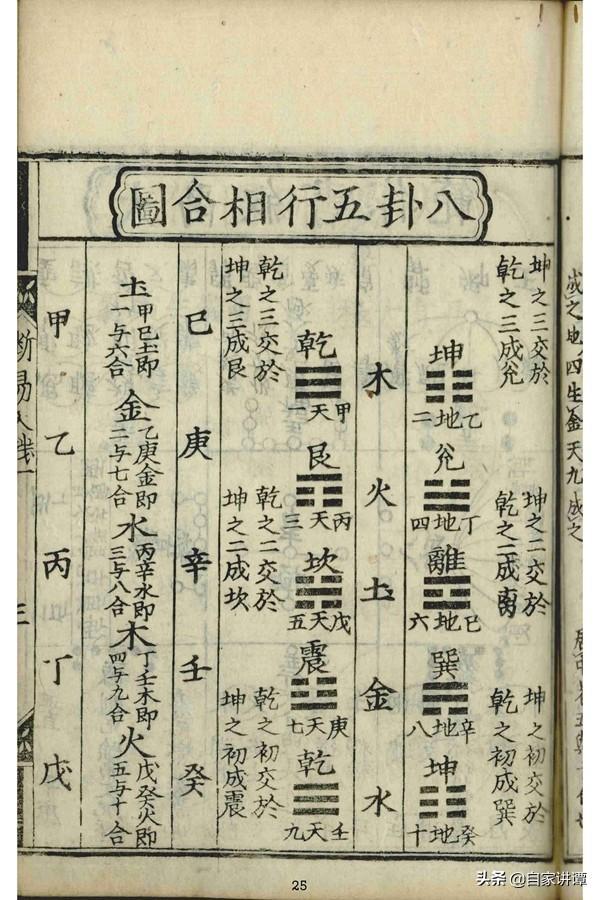 八卦五行相合圖
成之地四生金天九成之
坤之三交於
乾之三成兊
坤之二交於
乾之二成离
坤之初交於
乾之初成巽
坤
乙地二
兊
丁地四
離
己地六
巽
辛地八
坤
癸地十
木 火 土 金 水
乾
甲天一
艮
丙天三
坎
戊天五
震
庚天七
乾
壬天九
乾之三交於
坤之三成艮
乾之二交於
坤之二成坎
乾之初交於
坤之初成震
己 庚 辛 壬 癸
土 甲己土即
一与六合
金 乙庚金即
二与七合
水 丙辛水即
三与八合
木 丁壬木即
四与九合
火 戊癸火即
五与十合
甲 乙 丙 丁 戊
断易
三
25
头条 @自家讲谭